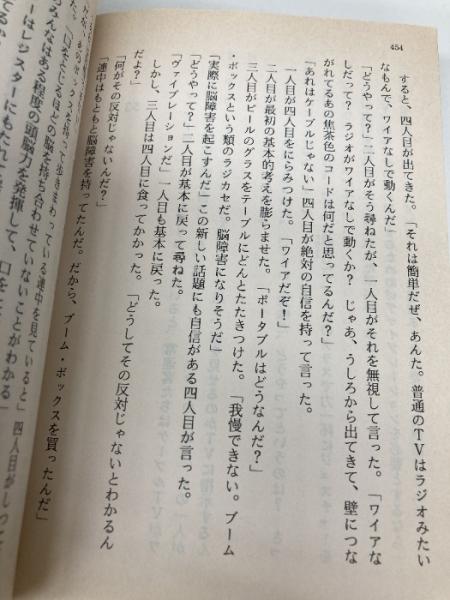 454
すると、四人目が出てきた。「それは簡単だぜ、あんた。普通のTVはラジオみたい
なもんで、ワイアなしで動くんだ」
「どうやって?」二人目がそう尋ねたが、一人目がそれを無視して言った。「ワイアな
しだって? ラジオがワイアなしで動くか? じゃあ、うしろから出てきて、壁につな
がれてるあの焦茶色のコードは何だと思ってるんだ?」
「あれはケーブルじゃない」四人目が絶対の自信を持って言った。
一人目が四人目をにらみつけた。「ワイアだぞ!」
二人目が最初の基本的考えを膨らませた。「ポータブルはどうなんだ?」
三人目がビールのグラスをテーブルにどんとたたきつけた。「我慢できない。ブーム
・ボックスという類のラジカセだ。脳障害になりそうだ」
「実際に脳障害を起こすんだ」この新しい話題にも自信がある四人目が言った。
「どうやって?」二人目が基本に戻って尋ねた。
「ヴァイブレーションだ」一人目も基本に戻った。
しかし、三人目は四人目に食ってかかった。「どうしてその反対じゃないとわかるん
だよ?」
「何がその反対じゃないんだ?」
「連中はもともと脳障害を持ってたんだ。だから、ブーム・ボックスを買ったんだ」
ボックスを持って歩きまわっている連中を見ていると」四人目が
ほどの脳を持ち合わせていないことがわかる」
みんなはある程度の頭脳力を発揮して、口を
ーはレジスターにもたれ